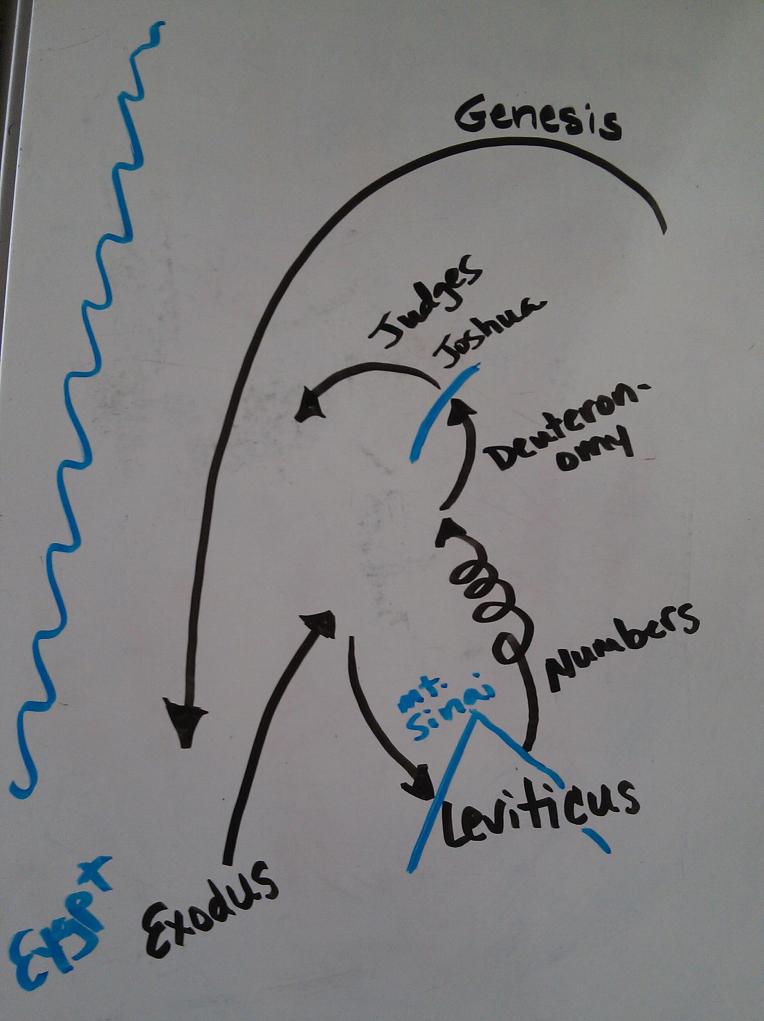 Genesis
Judges
Joshua
Deuteron-
omy
Numbers
mt.
Sinai
Leviticus
Exodus
Eygpt